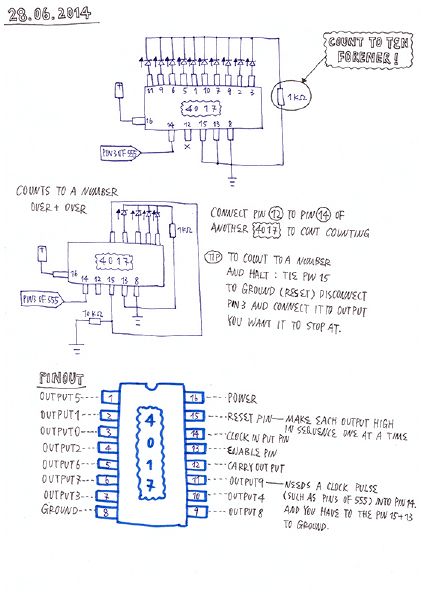 28.06.2014
COUNT TO TEN
FOREVER!
11 9 6 5 1 10 7 9 2 3
4017
1KΩ
16
14 12 15 13 8
PIN 3 OF 555
X
COUNTS TO A NUMBER
OVER + OVER
1KΩ
4017
16
14 12 15 13 8
PIN 3 OF 555
10KΩ
CONNECT PIN 12 TO PIN 14 OF
ANOTHER 4017 TO CONT COUNTING
TIP TO COUNT TO A NUMBER
AND HALT : TIE PIN 15
TO GROUND (RESET) DISCONNECT
PIN 3 AND CONNECT IT TO OUTPUT
YOU WANT IT TO STOP AT.
PINOUT
OUTPUT 5 1 16 POWER
OUTPUT 1 2 15 RESET PIN — MAKE EACH OUTPUT HIGH
IN SEQUENCE ONE AT A TIME
OUTPUT 0 3 14 CLOCK IN PUT PIN
OUTPUT 2 4 13 ENABLE PIN
OUTPUT 6 5 12 CARRY OUTPUT
OUTPUT 7 6 11 OUTPUT 9 — NEEDS A CLOCK PULSE
OUTPUT 3 7 10 OUTPUT 4 (SUCH AS PIN 3 OF 555) INTO PIN 14.
GROUND 8 9 OUTPUT 8 AND YOU HAVE TO TIE PIN 15+13
TO GROUND.
4017